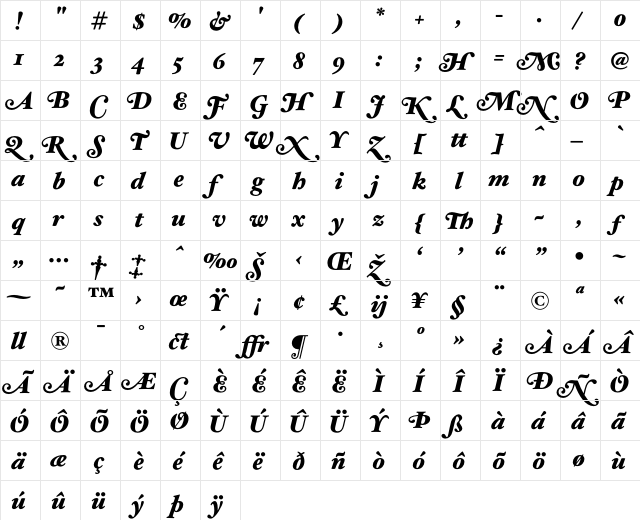 ! " # $ % & ' ( ) * + , - . / 0
1 2 3 4 5 6 7 8 9 : ; H = M ? @
A B C D E F G H I J K L M N O P
Q R S T U V W X Y Z [ tt ] ^ _ `
a b c d e f g h i j k l m n o p
q r s t u v w x y z { Th } ~ ‚ ƒ
„ … † ‡ ˆ ‰ Š ‹ Œ Ž ‘ ’ “ ” • ~
— ˜ ™ › œ Ÿ ¡ ¢ £ ij ¥ § ¨ © ª «
ll ® ¯ ° ct ´ ffr ¶ · ¸ º » ¿ À Á Â
Ã Ä Å Æ Ç È É Ê Ë Ì Í Î Ï Ð Ñ Ò
Ó Ô Õ Ö Ø Ù Ú Û Ü Ý Þ ß à á â ã
ä æ ç è é ê ë ð ñ ò ó ô õ ö ø ù
ú û ü ý þ ÿ